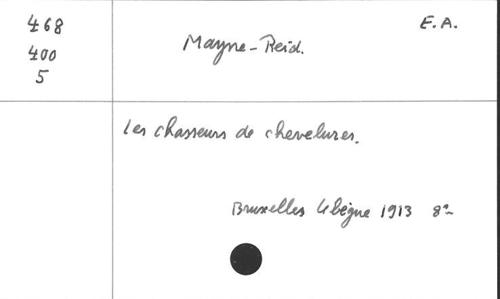 468
400
5
Mayne-Reid.
E.A.
Les chasseurs de chevelures.
Bruxelles Lebègue 1913 8°